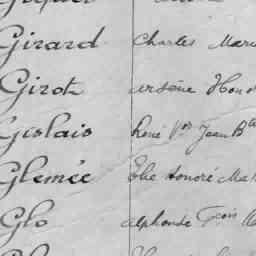 Girard Charles Marie
Girot Arsène Hono
Geslais René Vor Jean Bte
Glemée Elie Honoré Ma
Glo Alphonse Fçois